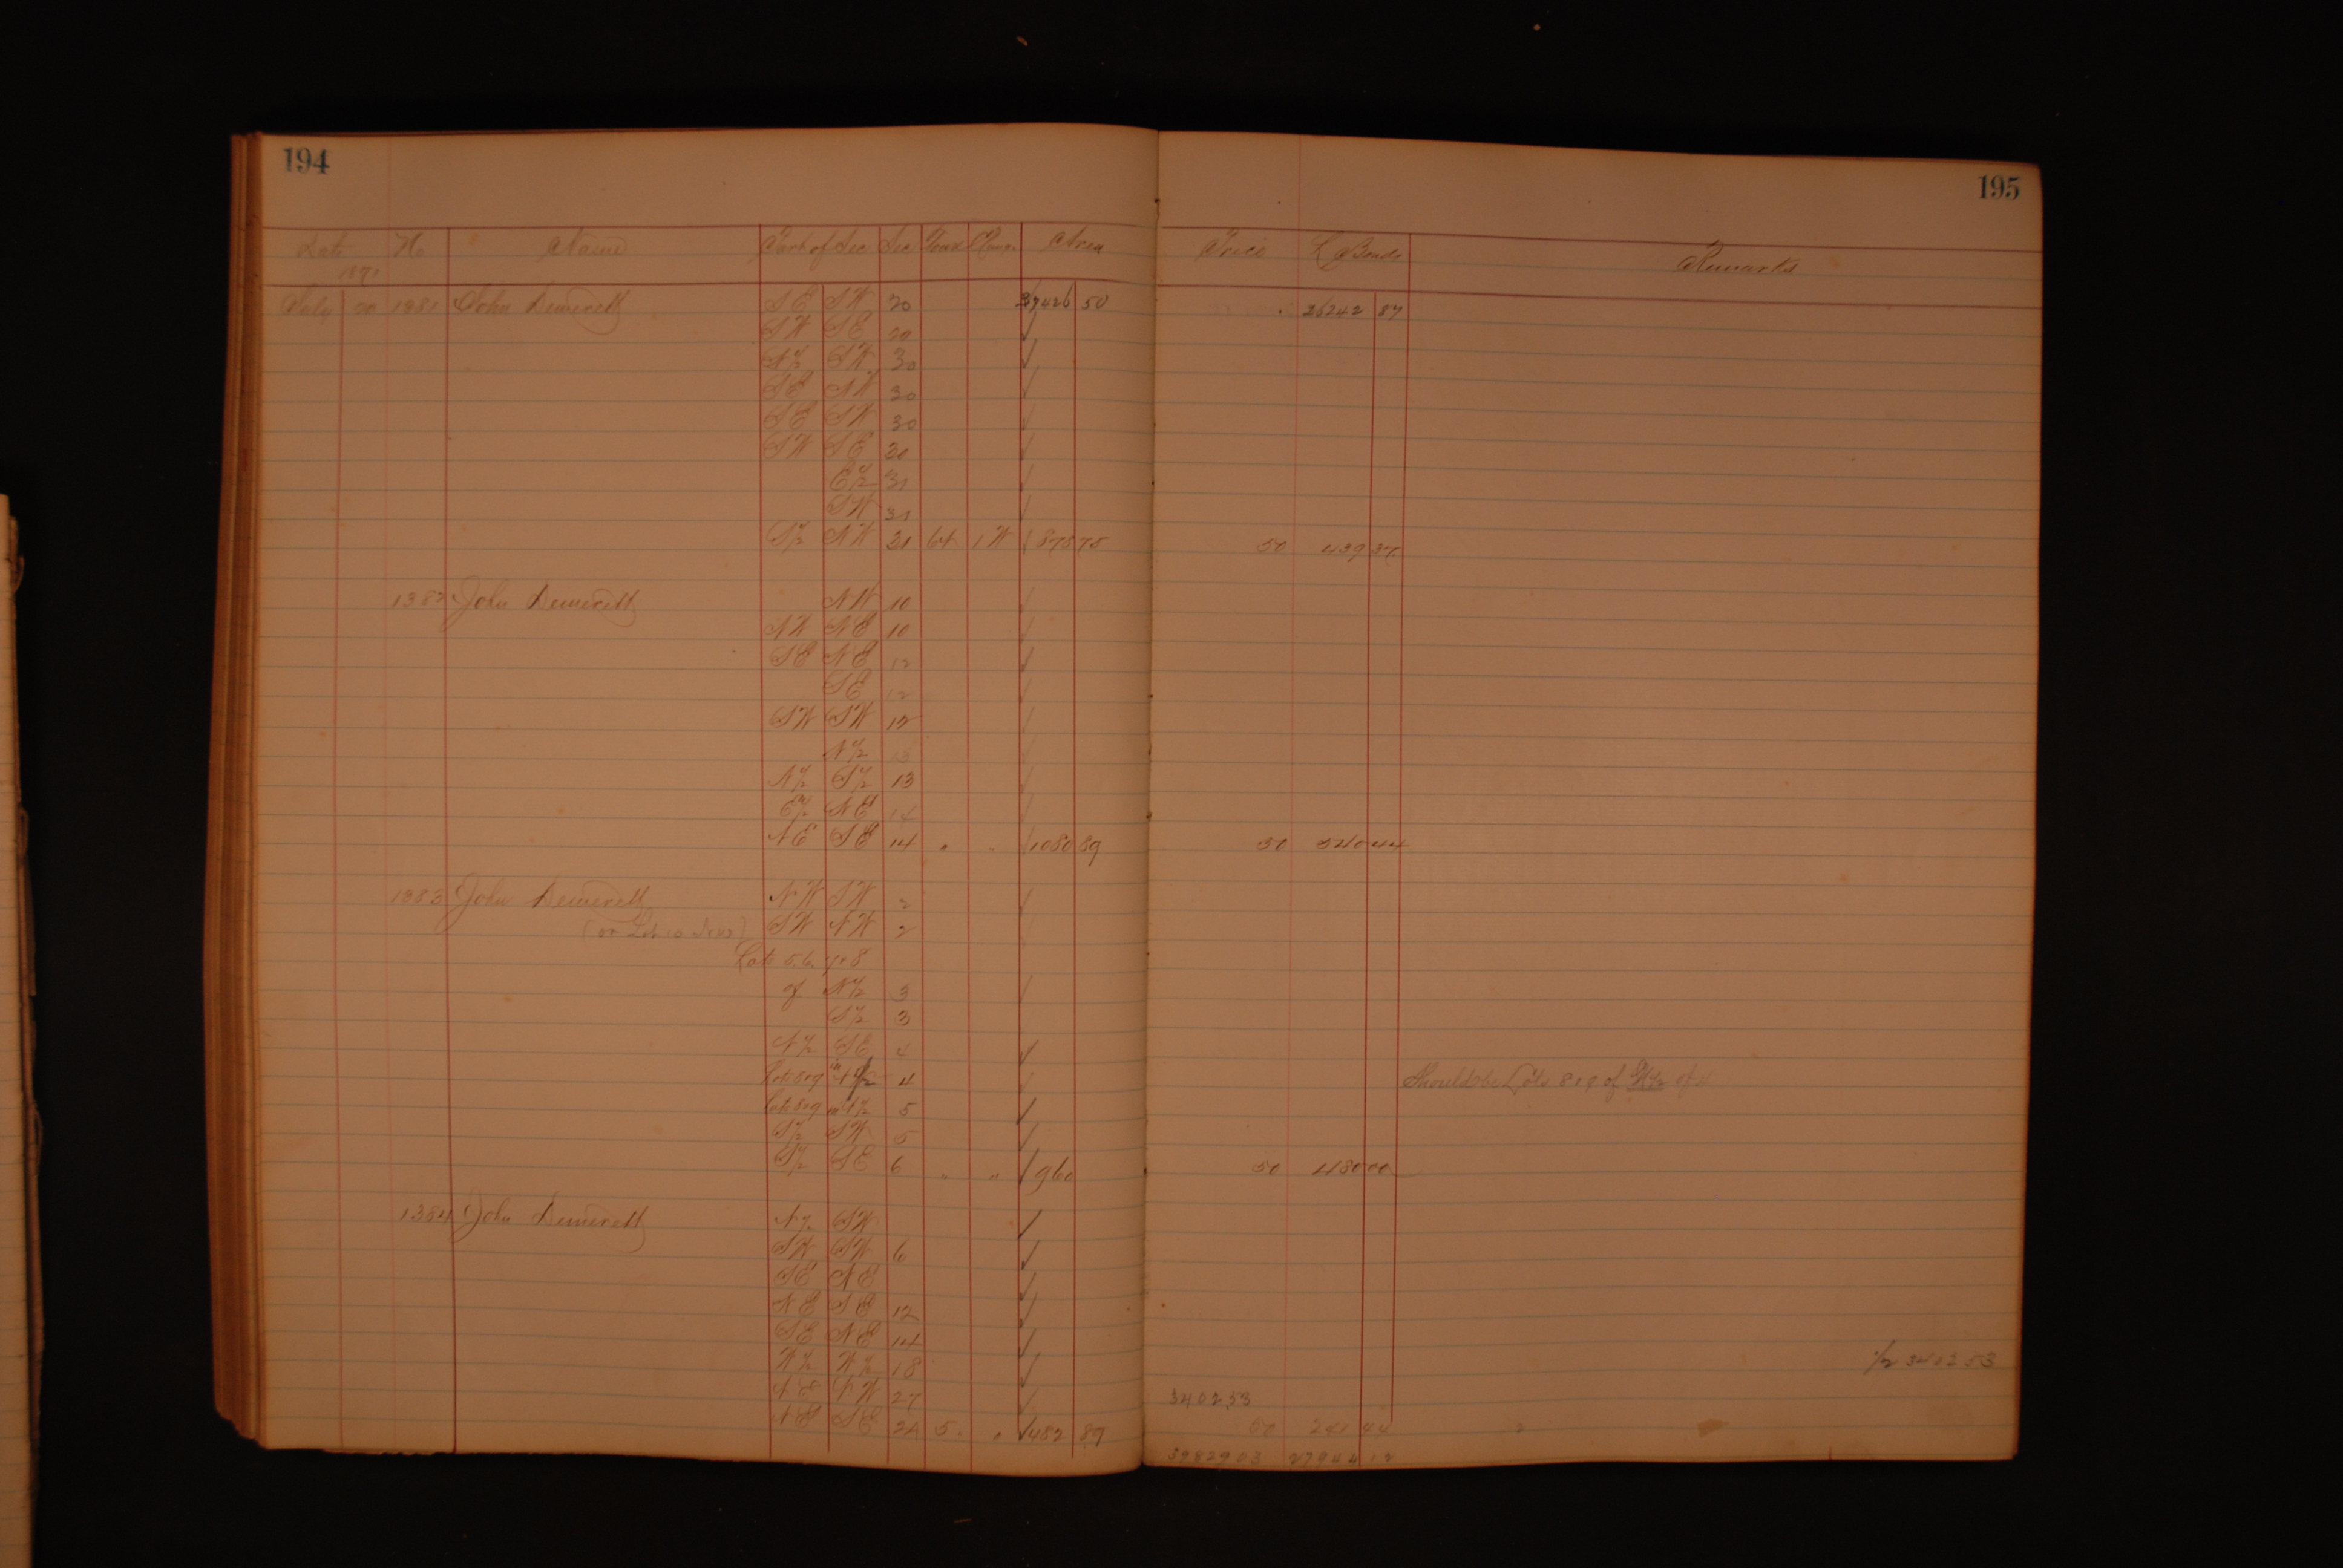 194
195
Date No Name Part of Sec Sec Town Range Area Price L Bonds Remarks
1871
July 20 1381 John Demeritt SE SW 20 37426 50 26242 87
SW SE 20
N½ SW 30
SE NW 30
SE SW 30
SW SE 30
E½ 31
SW 31
S½ NW 31 64 1 W 878 75 50 439 37
1382 John Demeritt NW 10
NW NE 10
SE NE 12
SE 12
SW SW 12
N½ 13
N½ S½ 13
E½ NE 14
NE SE 14 " " 1080 89 50 540 44
1383 John Demeritt NW SW 2
SW NW 2
Lots 5. 6. 7 + 8
of N½ 3
S½ 3
N½ SE 4
Lots 8 + 9 in N½ 4 Should be Lots 8 + 9 of
Lots 8 + 9 in N½ 5
S½ SW 5
S½ SE 6 " " 960 50 480 00
1384 John Demeritt N½ SW
SW SW 6
SE NE
NE SE 12
SE NE 14
W½ W½ 18 3402 53
NE SW 27 3402 53
NE SE 34 5 " 482 89 50 241 44
39829 03 27944 12